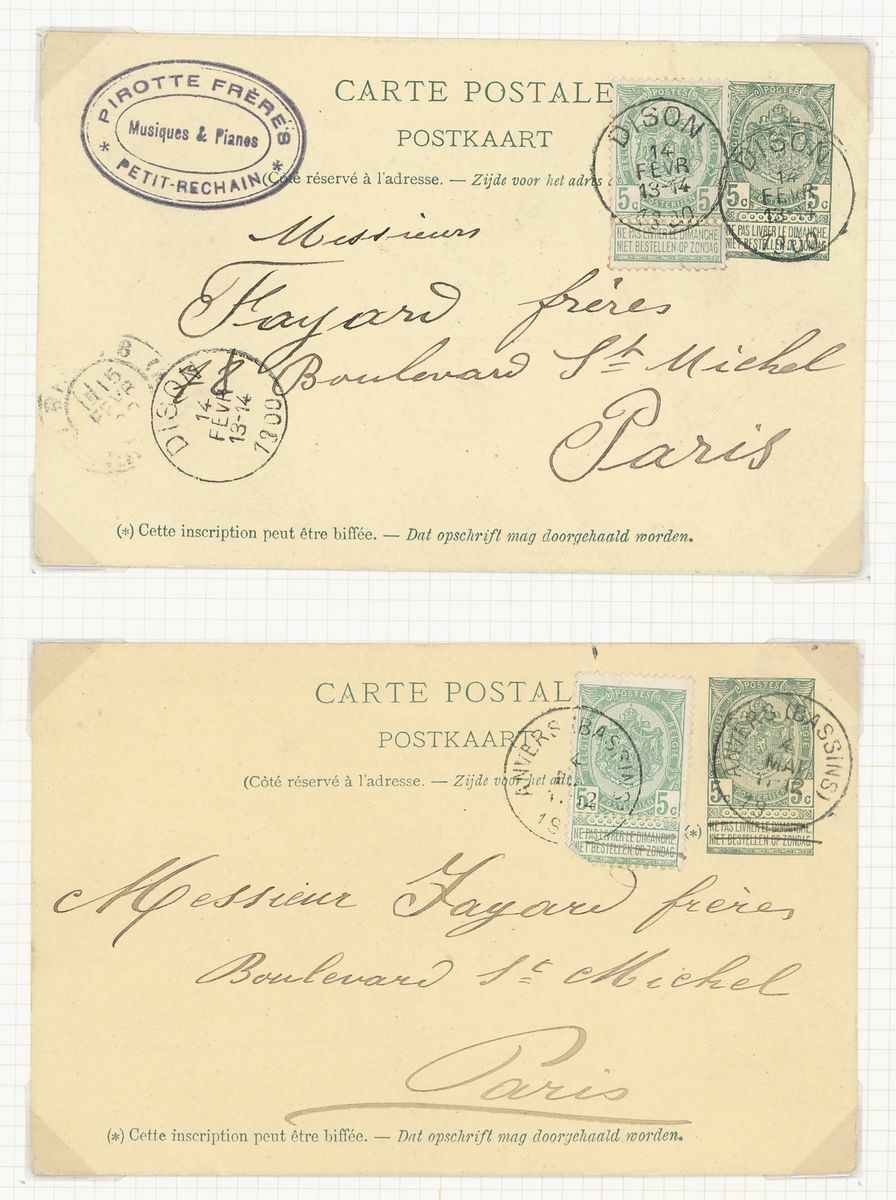 PIROTTE FRÈRES
Musiques & Pianos
* PETIT-RECHAIN *
CARTE POSTALE
POSTKAART
(Côté réservé à l'adresse. — Zijde voor het adres
POSTES
5c 5c
POSTERIJEN
NE PAS LIVRER LE DIMANCHE
NIET BESTELLEN OP ZONDAG
DISON
14
FEVR
13-14
1900
POSTES
5c 5c
NE PAS LIVRER LE DIMANCHE
NIET BESTELLEN OP ZONDAG
DISON
14
FEVR
13-14
1900
Messieurs
Fayard frères
Boulevard St Michel
Paris
DISON
14
FEVR
13-14
1900
15
(*) Cette inscription peut être biffée. — Dat opschrift mag doorgehaald worden.
CARTE POSTAL
POSTKAART
(Côté réservé à l'adresse. — Zijde voor het
POSTES
POSTERIJEN
5c 5c
NE PAS LIVRER LE DIMANCHE
NIET BESTELLEN OP ZONDAG
ANVERS (BASSINS)
(*)
POSTES
POSTERIJEN
5c 5c
NE PAS LIVRER LE DIMANCHE
NIET BESTELLEN OP ZONDAG
ANVERS (BASSINS)
MAI
Messieur Fayard frères
Boulevard St Michel
Paris
(*) Cette inscription peut être biffée. — Dat opschrift mag doorgehaald worden.